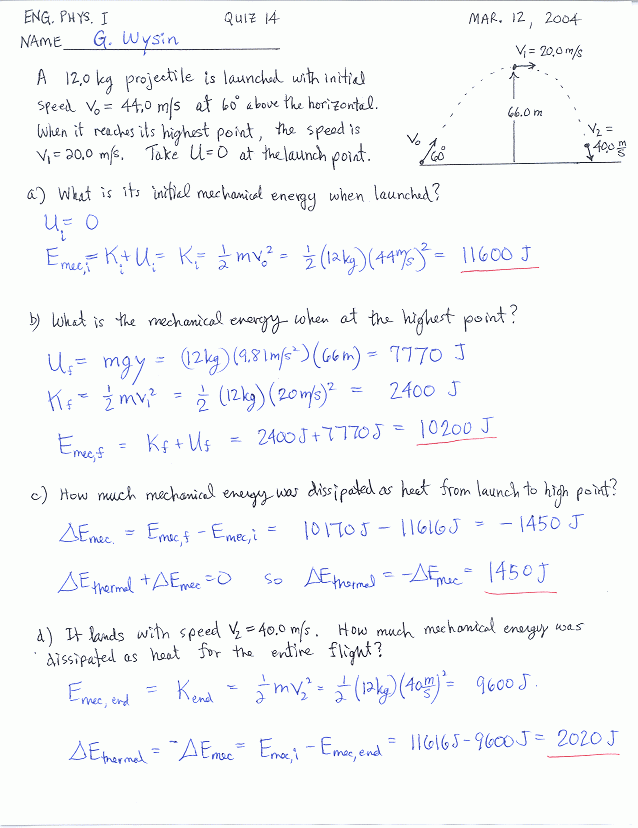 ENG. PHYS. I QUIZ 14 MAR. 12, 2004
NAME G. Wysin
V₁ = 20.0 m/s
A 12.0 kg projectile is launched with initial
speed V₀ = 44.0 m/s at 60° above the horizontal.
66.0 m
When it reaches its highest point, the speed is
V₀ 60° V₂ = 40.0 m/s
V₁ = 20.0 m/s. Take U=0 at the launch point.
a) What is its initial mechanical energy when launched?
Uᵢ = 0
Emec,i = Kᵢ + Uᵢ = Kᵢ = ½ mv₀² = ½ (12kg)(44 m/s)² = 11600 J
b) What is the mechanical energy when at the highest point?
U_f = mgy = (12kg)(9.81 m/s²)(66m) = 7770 J
K_f = ½ mv₁² = ½ (12kg)(20 m/s)² = 2400 J
Emec,f = K_f + U_f = 2400 J + 7770 J = 10200 J
c) How much mechanical energy was dissipated as heat from launch to high point?
ΔEmec. = Emec,f − Emec,i = 10170 J − 11616 J = −1450 J
ΔEthermal + ΔEmec = 0 so ΔEthermal = −ΔEmec = 1450 J
d) It lands with speed V₂ = 40.0 m/s. How much mechanical energy was
dissipated as heat for the entire flight?
Emec, end = Kend = ½ mv₂² = ½ (12kg)(40 m/s)² = 9600 J.
ΔEthermal = −ΔEmec = Emec,i − Emec,end = 11616 J − 9600 J = 2020 J